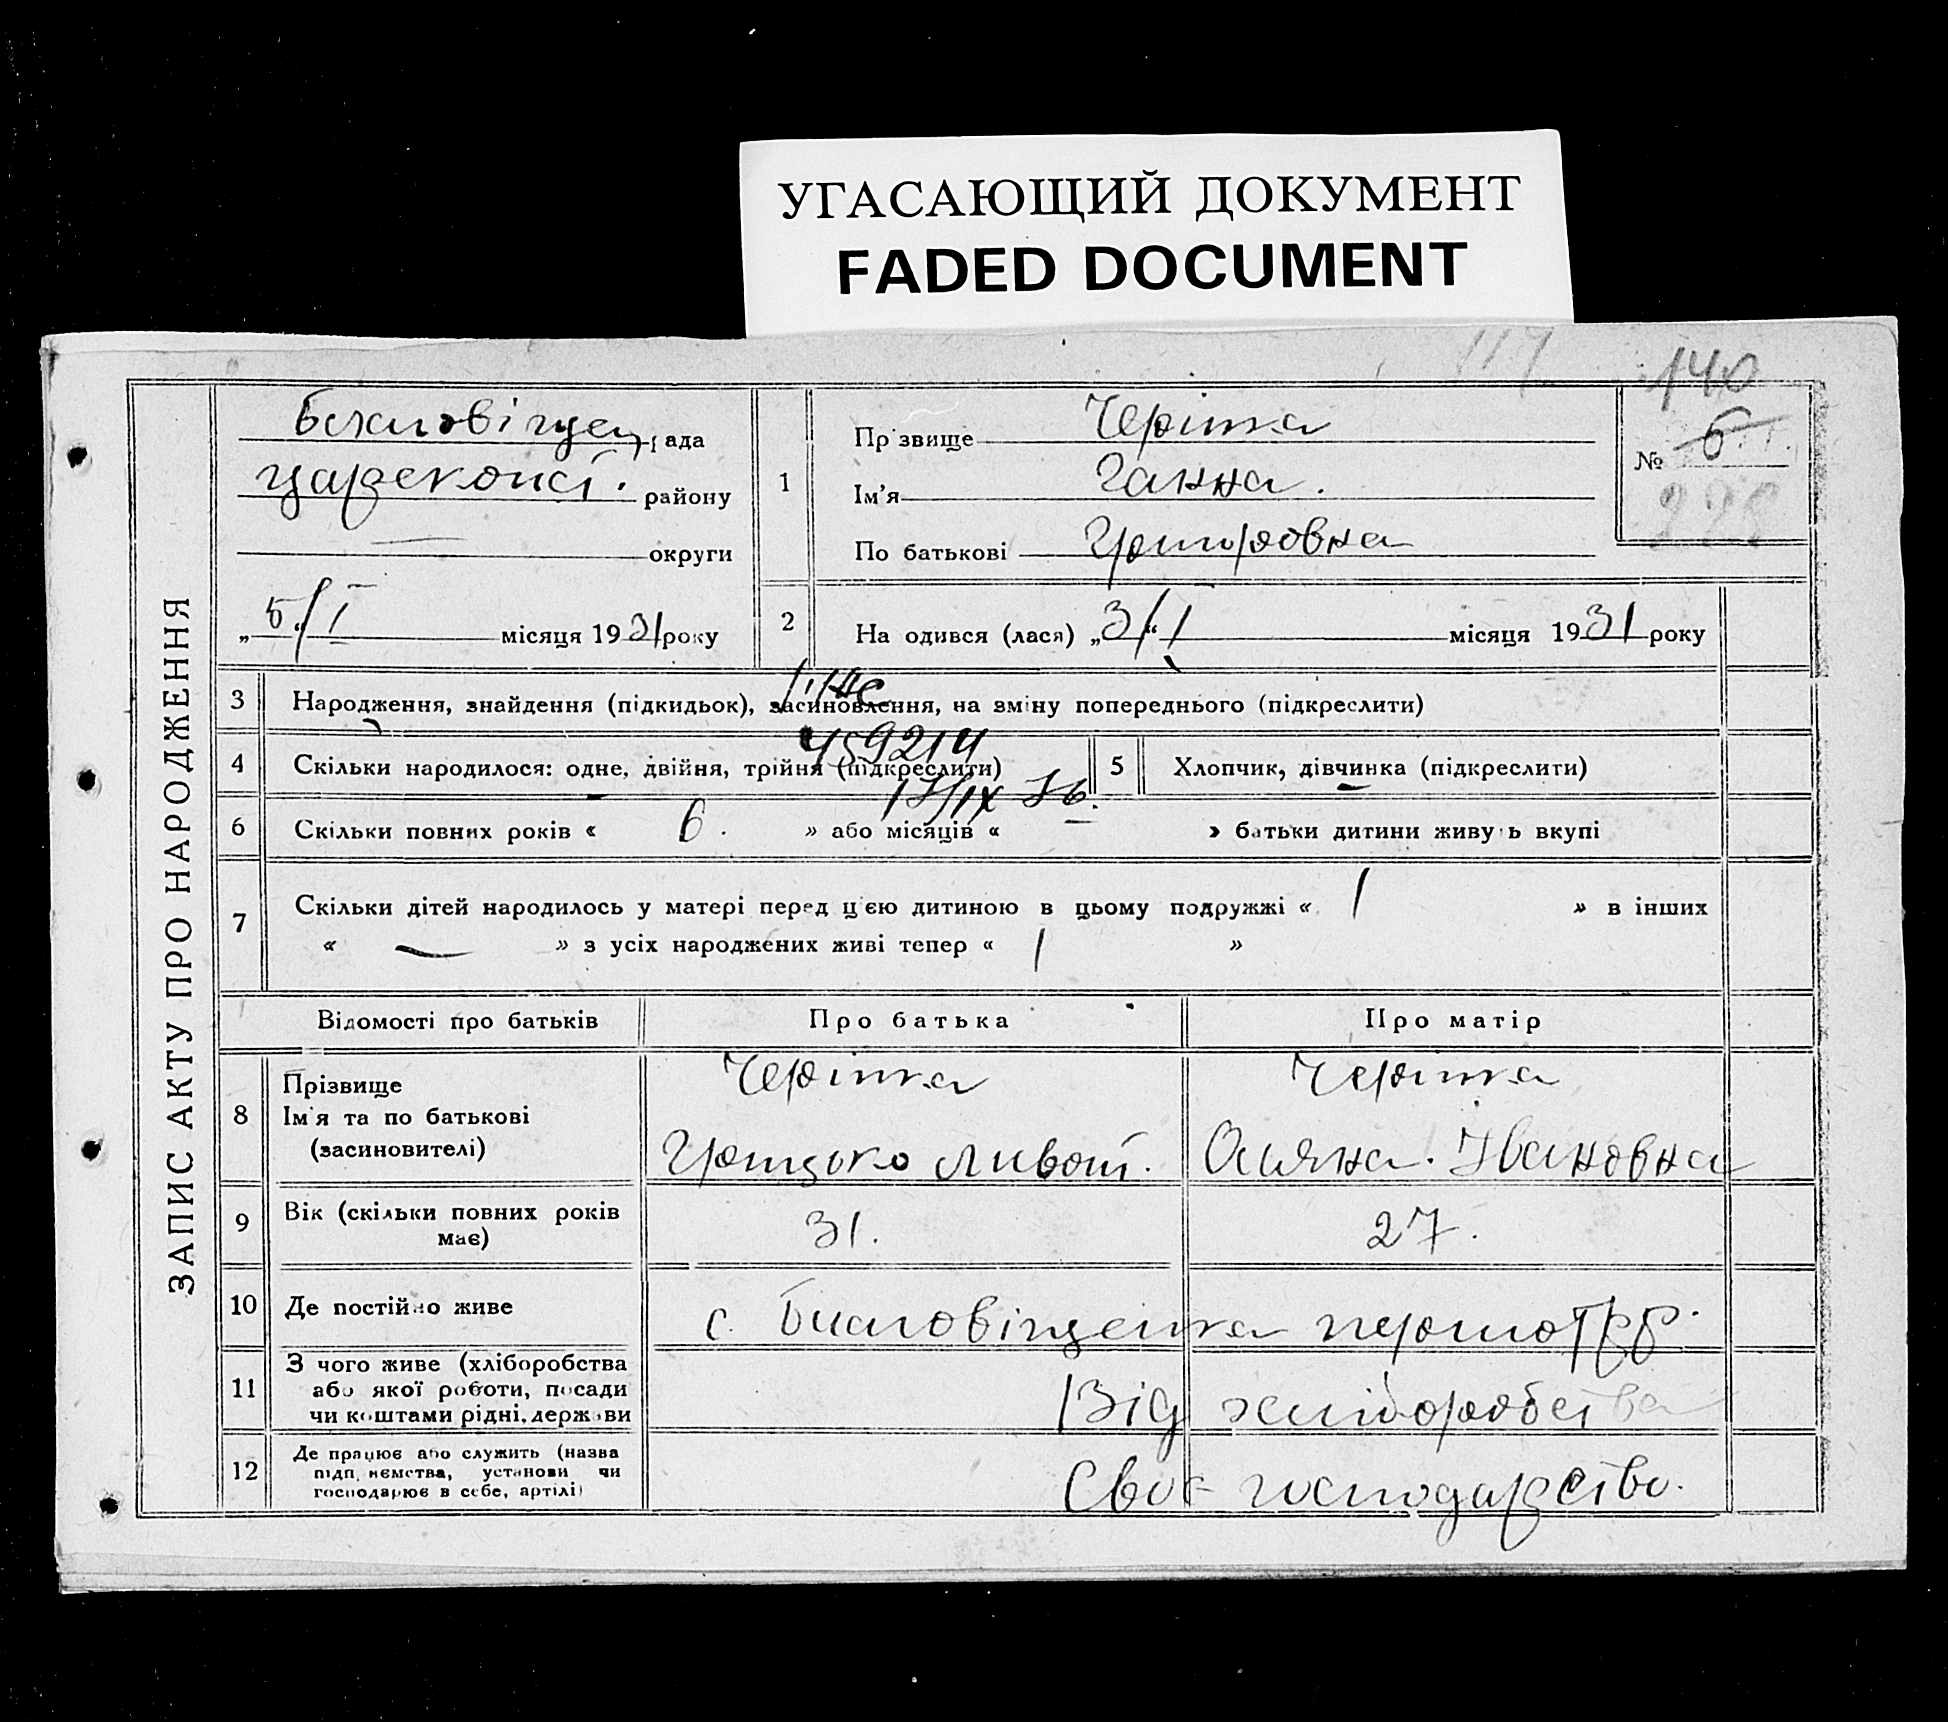 УГАСАЮЩИЙ ДОКУМЕНТ
FADED DOCUMENT
117
140
ЗАПИС АКТУ ПРО НАРОДЖЕННЯ
рада
району
— округи
„5“/I місяця 1931 року
1
Прізвище Черінка
Ім'я Ганна.
По батькові Григоровна
№ 6
228
2 На одився (лася) „3/“ I місяця 1931 року
3 Народження, знайдення (підкидьок), засиновлення, на зміну попереднього (підкреслити)
459214
4 Скільки народилося: одне, двійня, трійня (підкреслити)
5 Хлопчик, дівчинка (підкреслити)
17/IX 76.
6 Скільки повних років « 6. » або місяців « » батьки дитини живуть вкупі
7 Скільки дітей народилось у матері перед цією дитиною в цьому подружжі « 1 » в інших
« — » з усіх народжених живі тепер « 1 »
Відомості про батьків Про батька Про матір
8 Прізвище Черінка Черінка
Ім'я та по батькові
(засиновителі) Грицько Іванівна
9 Вік (скільки повних років має) 31. 27.
10 Де постійно живе с.
11 З чого живе (хліборобства
або якої роботи, посади
чи коштами рідні, держави
Від хліборобства
12 Де працює або служить (назва
підприємства, установи чи
господарює в себе, артілі)
Своє господарство.